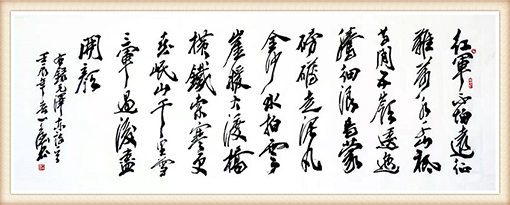 红軍不怕遠征
難萬水千山祗
等閒五嶺逶迤
騰細浪烏蒙
磅礴走泥丸
金沙水拍雲
崖暖大渡橋
横鐵索寒更
喜岷山千里雪
三軍過後盡
開顏
毛澤東詩